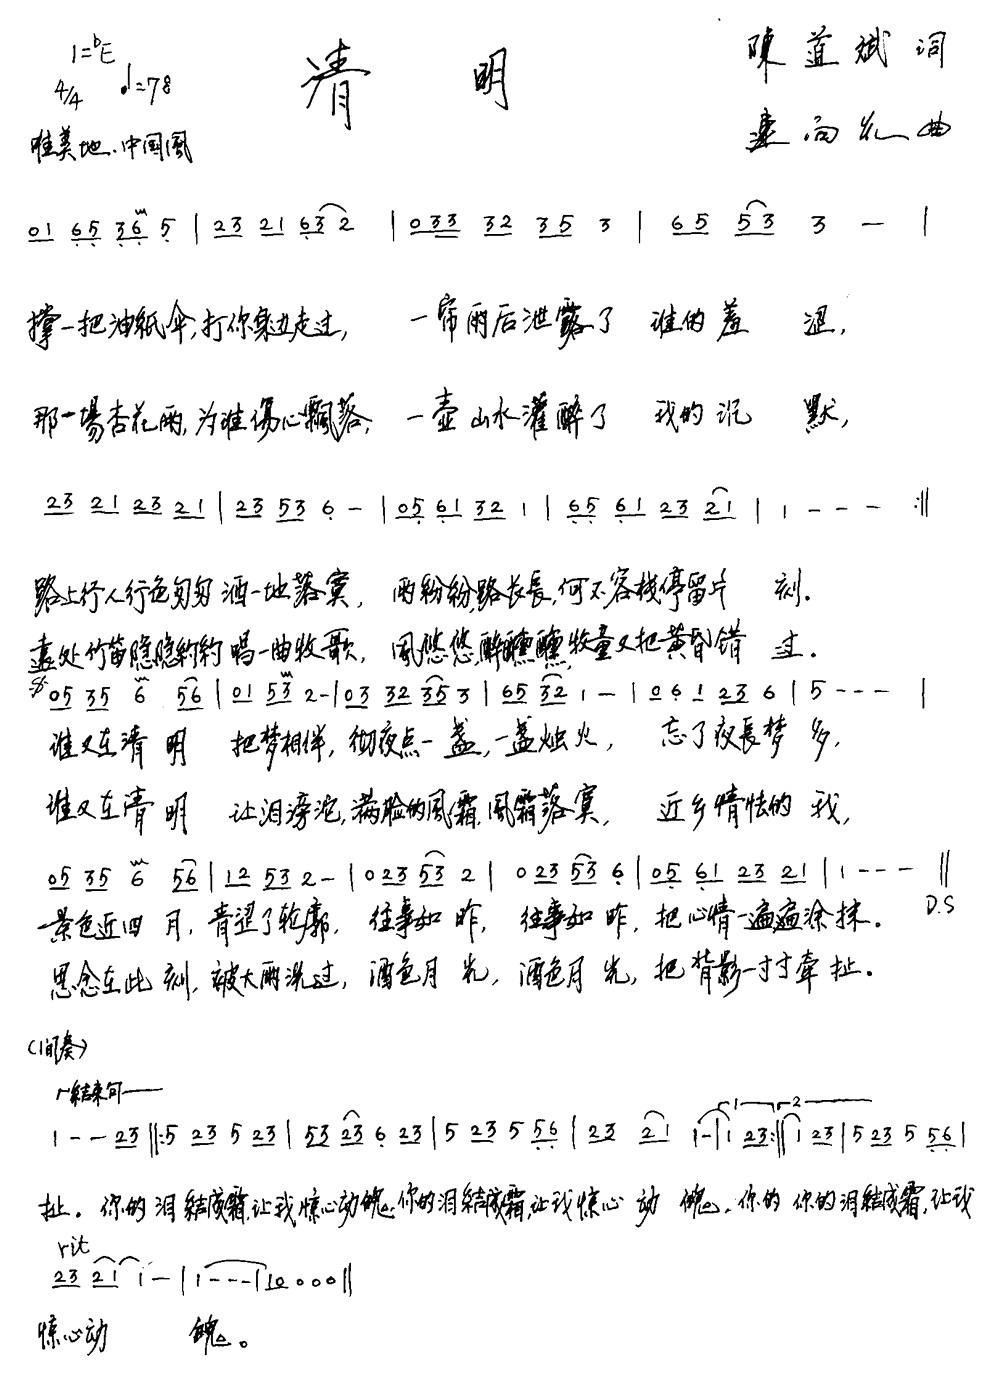 1=♭E
清 明
陳 益 斌 词
4/4 ♩=78
向 曲
唯美地.中国風
01 65 36 5 | 23 21 63 2 | 033 32 35 3 | 65 53 3 — |
撑一把油紙伞,打你身边走过, 一帘雨后泄露了 谁的羞 涩,
那一場杏花雨,为谁傷心飄落, 一壶山水灌醉了 我的沉 默,
23 21 23 21 | 23 53 6 - | 05 61 32 1 | 65 61 23 21 | 1 - - - :||
路上行人行色匆匆洒一地落寞, 雨紛紛,路长長,何不客栈停留片 刻.
遠处竹笛隐隐約約唱一曲牧歌, 風悠悠醉醺醺,牧童又把黄昏錯 过.
05 35 6 56 | 01 53 2- | 03 32 35 3 | 65 32 1 - | 0 6 1 23 6 | 5 - - - |
谁又在清 明 把梦相伴, 彻夜点一盏,一盏烛火, 忘了夜長梦 多,
谁又在清 明 让泪滂沱,满脸的風霜,風霜落寞, 近乡情怯的 我,
05 35 6 56 | 12 53 2- | 0 23 53 2 | 0 23 53 6 | 05 61 23 21 | 1 - - - || D.S
景色近四 月, 青埋了轮廓, 往事如 昨, 往事如 昨, 把心情一遍遍涂抹.
思念在此 刻, 被大雨洗过, 酒色月 光, 酒色月 光, 把背影一寸寸牵扯.
(间奏)
結束句——
1 - - 23 ||: 5 23 5 23 | 53 23 6 23 | 5 23 5 56 | 23 21 1 - | 1 23 :|| 1 23 | 5 23 5 56 |
扯. 你的泪結成霜,让我惊心动魄.你的泪結成霜,让我惊心 动 魄. 你的 你的泪結成霜,让我
rit
23 21 1 - | 1 - - - | 10 0 0 0 ||
惊心动 魄。